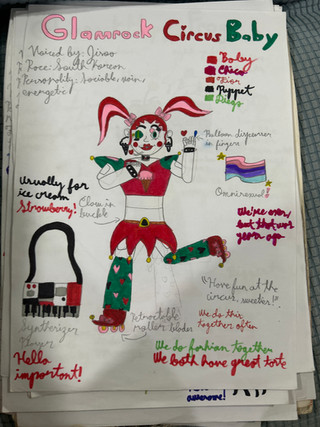 Glamrock Circus Baby
Voiced by: Jisoo
Race: South Korean
Personality: Sociable, vain,
energetic
Baby
Chica
Puppet
Balloon dispensers
on fingers
Omnisexual!
Usually for
ice cream
Strawberry!
Claw in
buckle
We're over,
but that was
years ago
"Have fun at the
circus, sweeties!"
We do this
together often
Synthesizer
Player
Retractable
roller blades
Hella
important!
We do fashion together
We both have great taste
awesome!